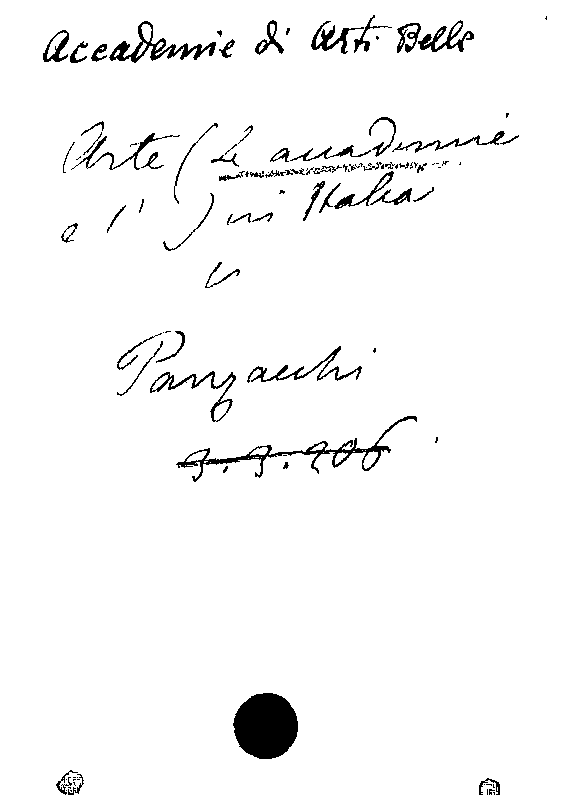 Accademie di Arti Belle
Arte (Le accademie
e l') in Italia
v
Panzacchi
3.3.206